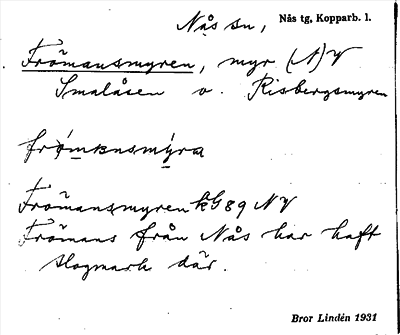 Nås sn, Nås tg, Kopparb. l.
Frömansmyren, myr (N)V
Smalåsen o. Risbergsmyren
frömansmýra
Frömansmyren kG 89 NV
Frömans från Nås har haft
slogmark där.
Bror Lindén 1931